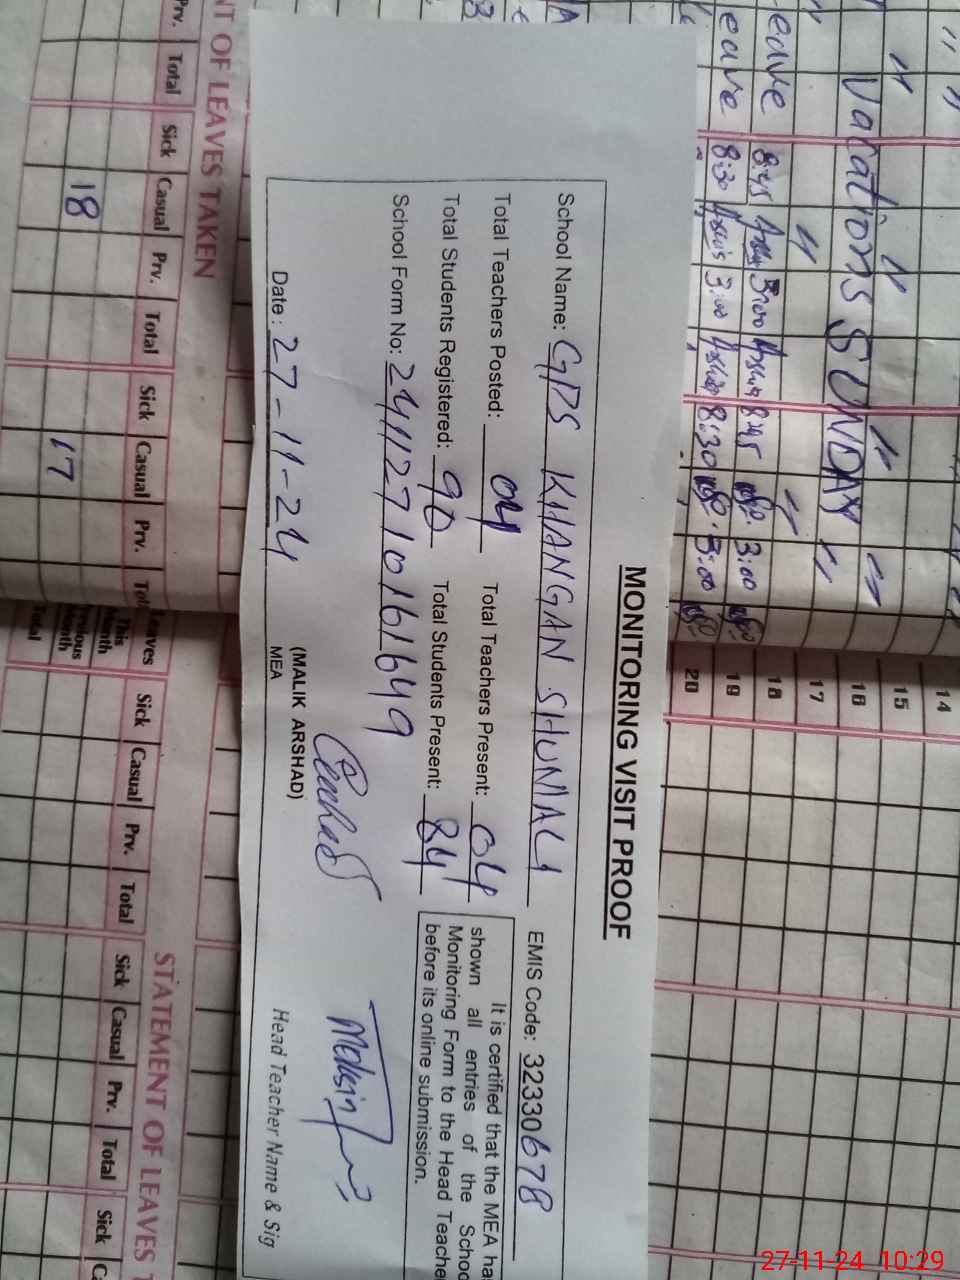 MONITORING VISIT PROOF
School Name: GPS KHANGAN SHUMALI EMIS Code: 32330678
Total Teachers Posted: 04 Total Teachers Present: 04
Total Students Registered: 90 Total Students Present: 84
School Form No: 24112710161649
It is certified that the MEA ha
shown all entries of the Schoo
Monitoring Form to the Head Teache
before its online submission.
Date: 27-11-24
(MALIK ARSHAD)
MEA
Mohsin
Head Teacher Name & Sig
NT OF LEAVES TAKEN
Prv. Total Sick Casual Prv. Total Sick Casual Prv. Tot
18
17
STATEMENT OF LEAVES T
Leaves Sick Casual Prv. Total Sick Casual Prv. Total Sick Ca
This Month
Previous Month
Total
14
15
16 Vacations SUNDAY
17
18 eave 8:45 3:00 8:45 3:00
19 eave 8:30 3:00 8:30 3:00
20
27-11-24 10:29